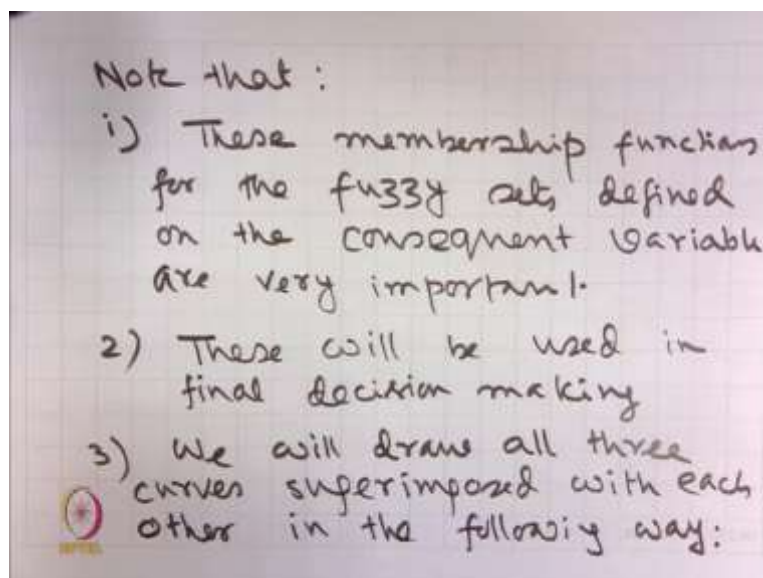 Note that :
i) These membership functions
for the fuzzy sets defined
on the consequent variable
are very important.
2) These will be used in
final decision making
3) We will draw all three
curves superimposed with each
other in the followig way:
NPTEL